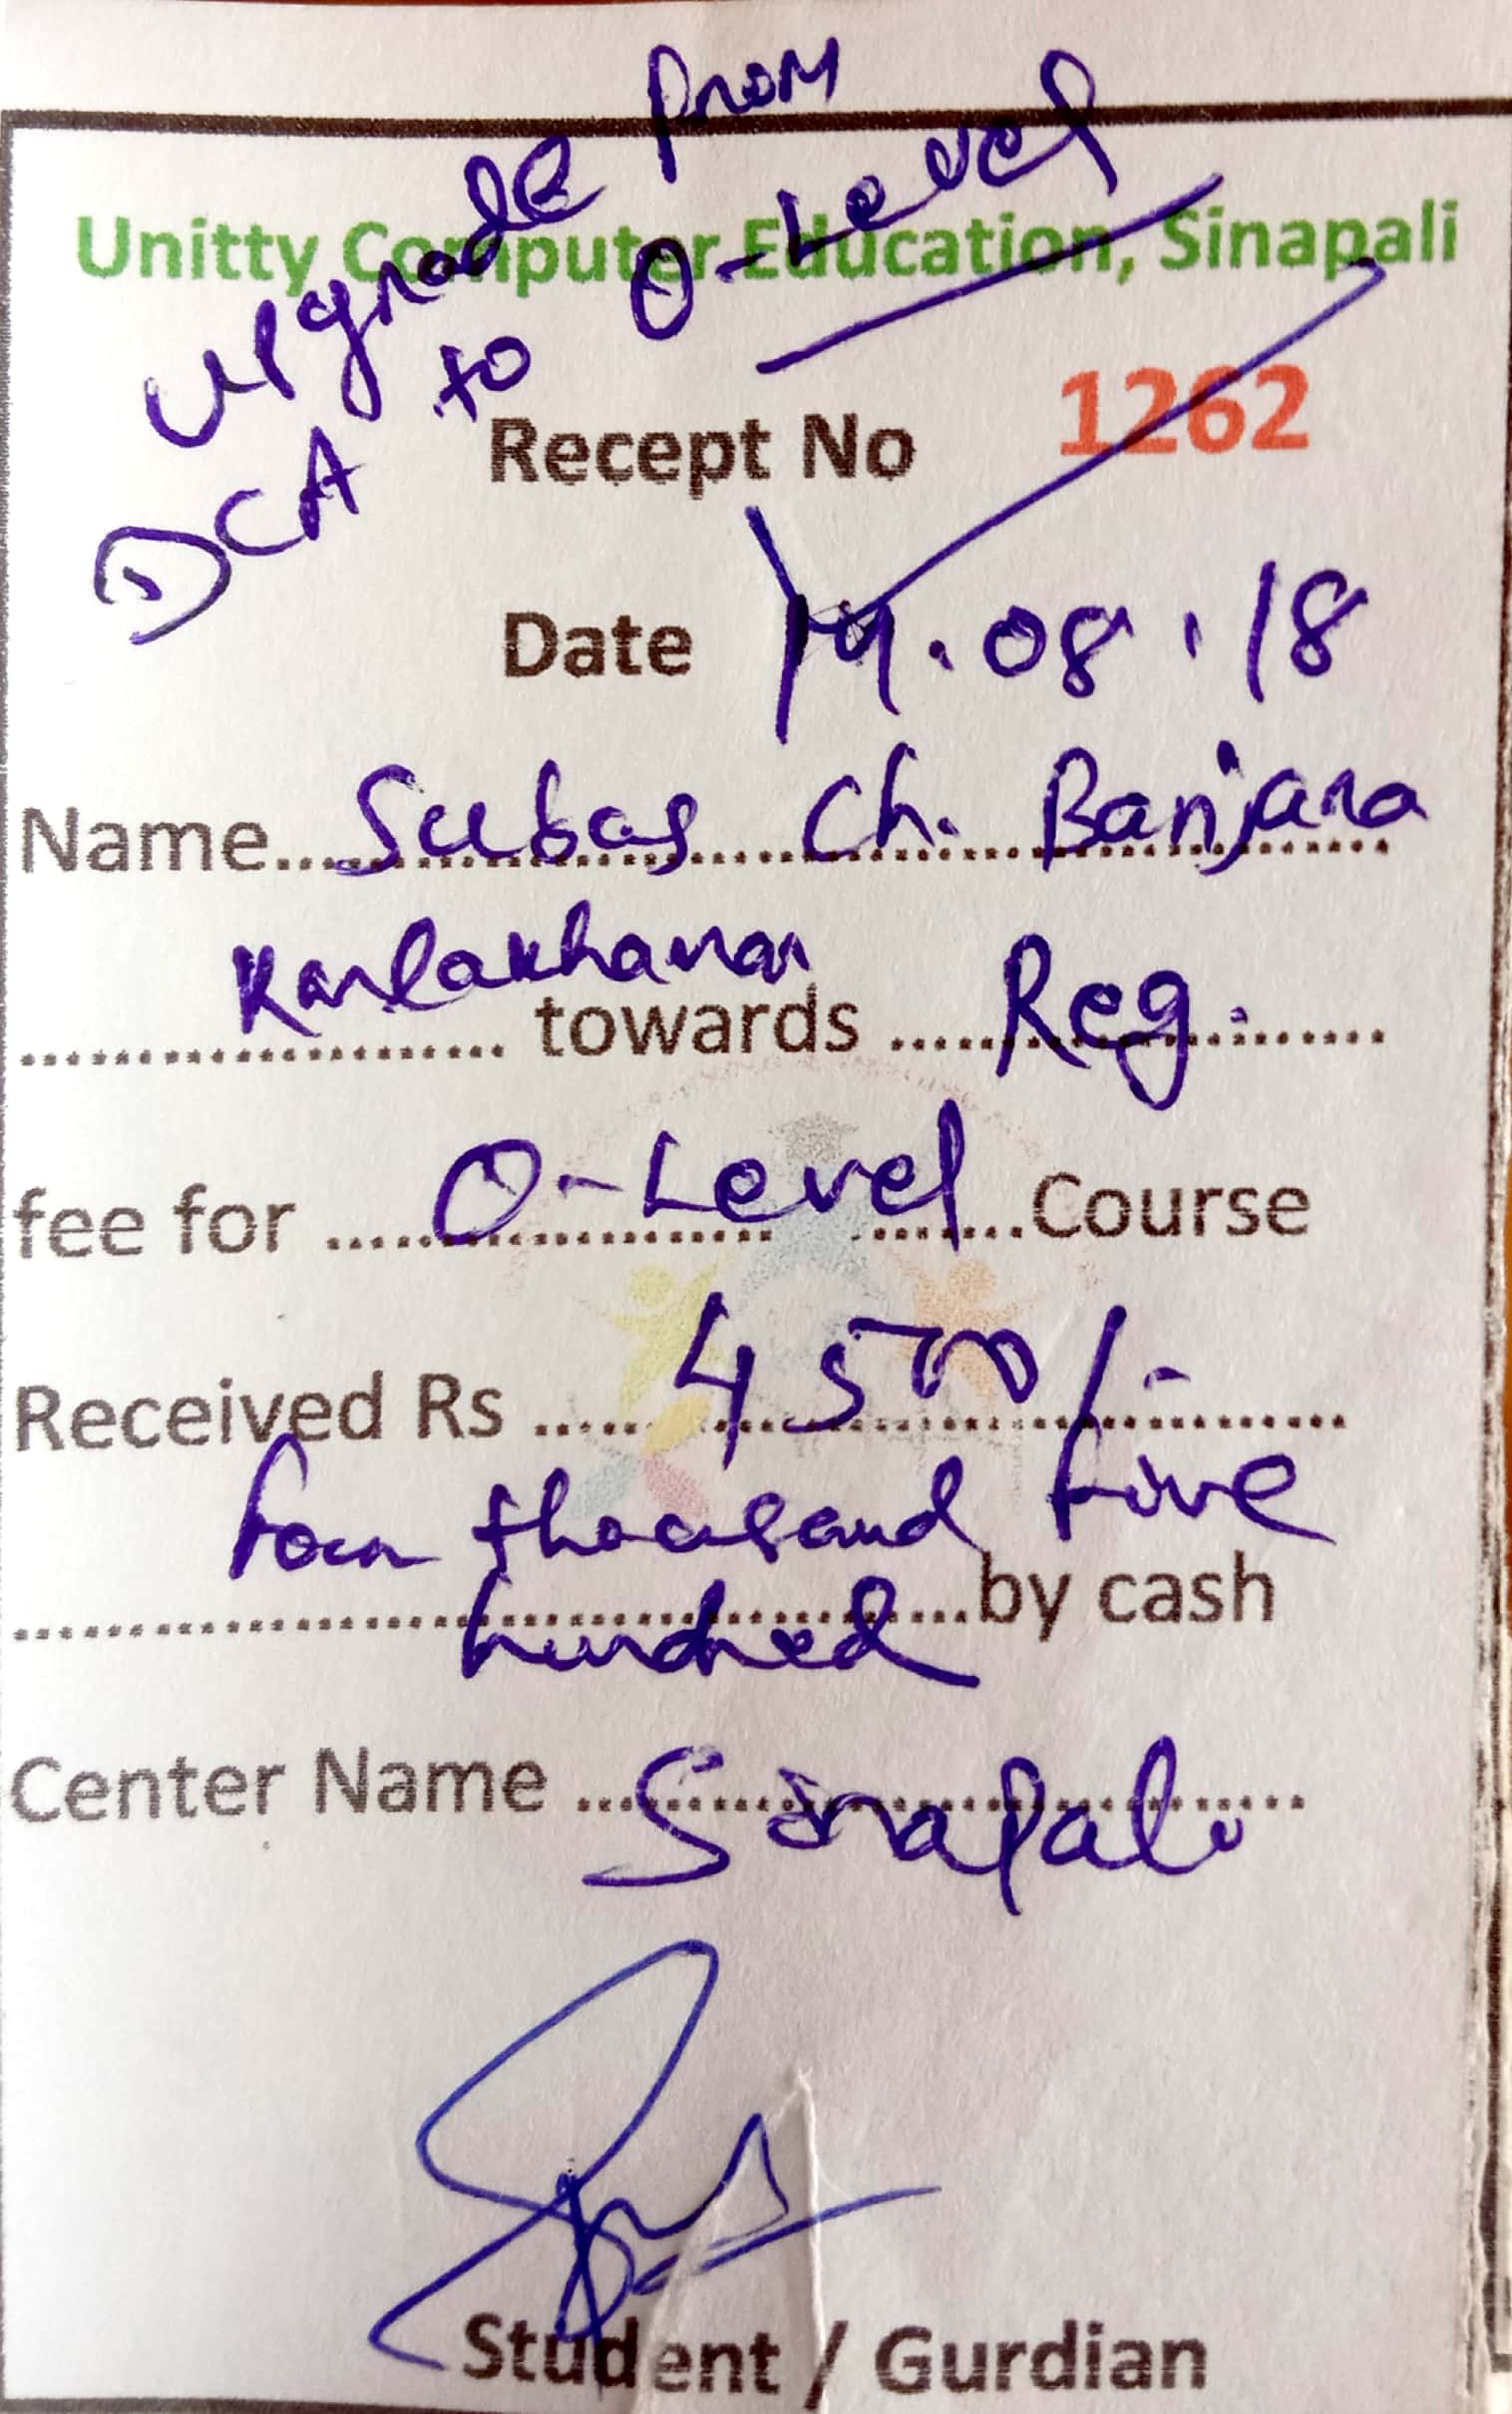 Upgrade from
DCA to O-Level
Unitty Computer Education, Sinapali
Recept No 1262
Date 19.08.18
Name....Subas Ch. Banjara
Karlakhama
............ towards ....Reg.
fee for ....O-Level....Course
Received Rs ....4500/-
four thousand five
............by cash
hundred
Center Name ....Sinapali
Student / Gurdian